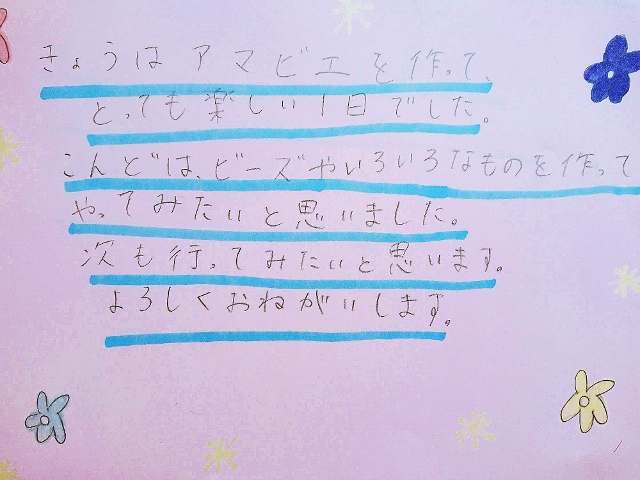 きょうはアマビエを作って、
とっても楽しい1日でした。
こんどは、ビーズやいろいろなものを作って
やってみたいと思いました。
次も行ってみたいと思います。
よろしくおねがいします。